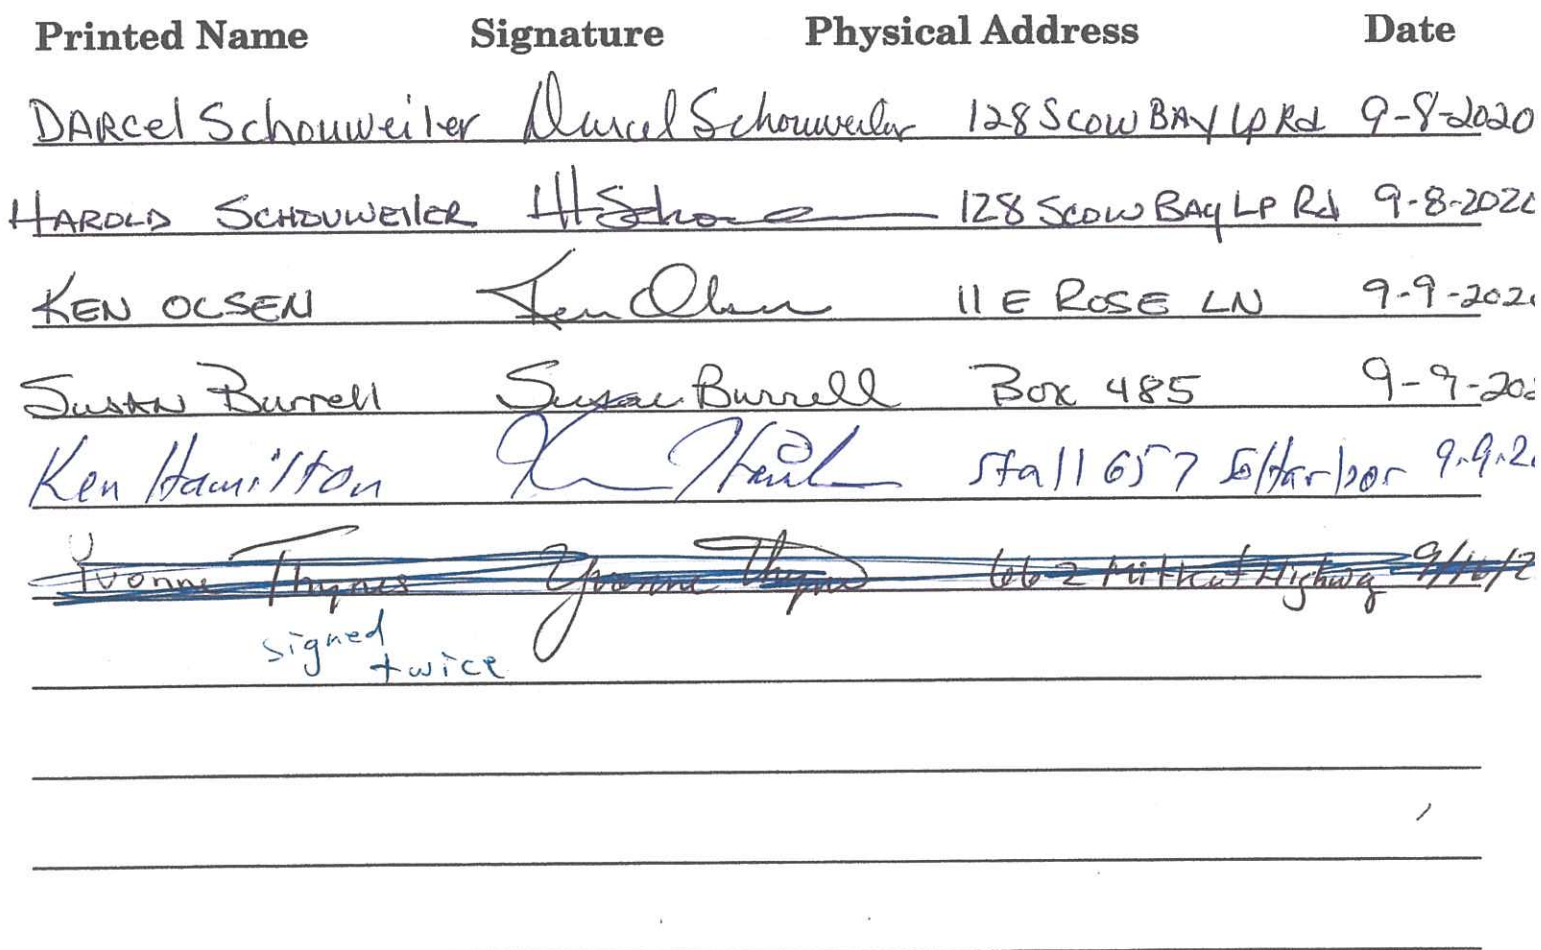 Printed Name Signature Physical Address Date
DARCel Schouweiler Darcel Schouweiler 128 Scow BAY LP Rd 9-8-2020
HAROLD SCHOUWEILER H Scho 128 Scow BAy LP Rd 9-8-202
KEN OLSEN Ken Olsen 11 E ROSE LN 9-9-202
SUSAN Burrell Susan Burrell Box 485 9-9-202
Ken Hamilton Stall 657 Harbor 9.9.2
Yvonne Thynes Yvonne Thynes 662 Mitkof Highway 9/10/2
signed
twice